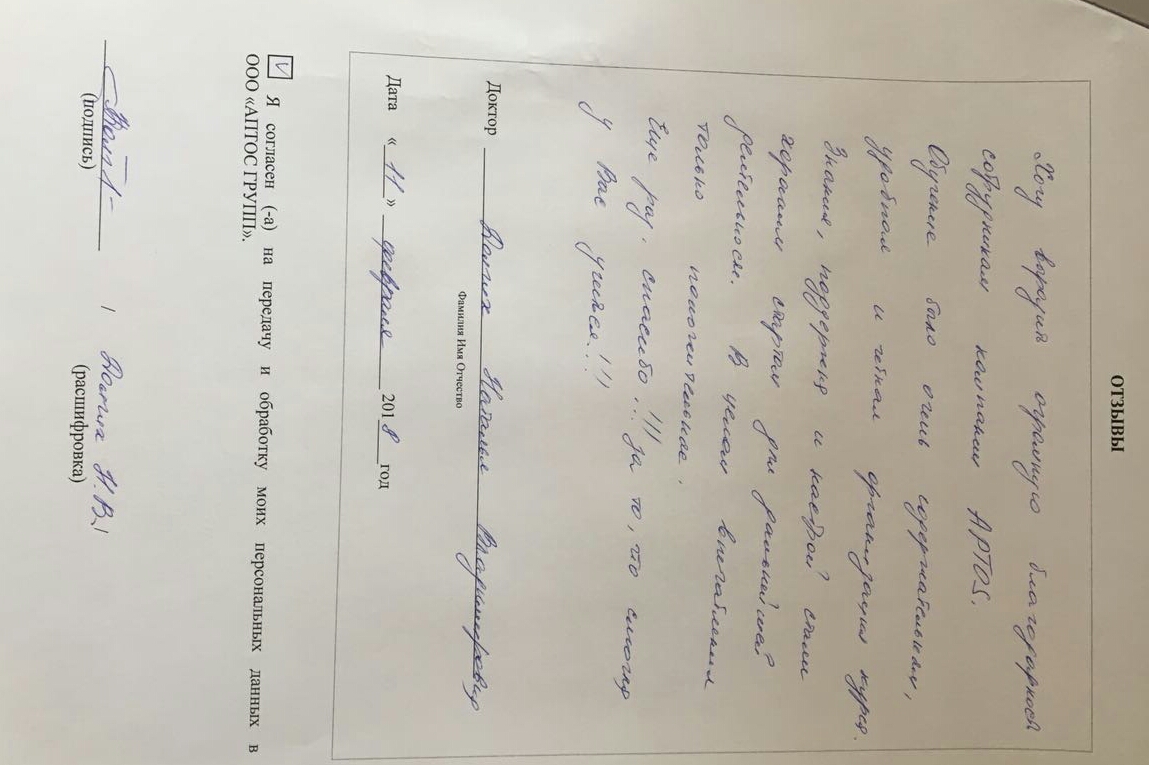 ОТЗЫВЫ
Хочу выразить огромную благодарность
сотрудникам компании APTOS.
Обучение было очень содержательным,
удобная и четкая организация курса.
Знания, поддержка и настрой стали
хорошим стартом для дальнейшей
деятельности. В целом впечатления
только положительные.
Еще раз спасибо!!! За то, что смогла
у Вас учиться!!!
Доктор Наталья Владимировна
Фамилия Имя Отчество
Дата « 11 » февраля 2018 год
Я согласен (-а) на передачу и обработку моих персональных данных в
ООО «АПТОС ГРУПП».
/ Н.В. /
(подпись) (расшифровка)